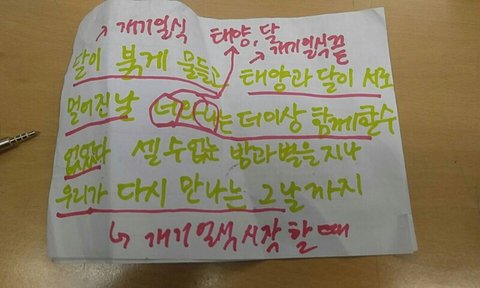 개기일식 태양, 달
개기일식끝
달이 붉게 물들고 태양과 달이 서로
멀어진날 너와나는 더이상 함께할수
없었다 셀수없는 밤과별을지나
우리가 다시 만나는 그날까지
개기일식시작할때